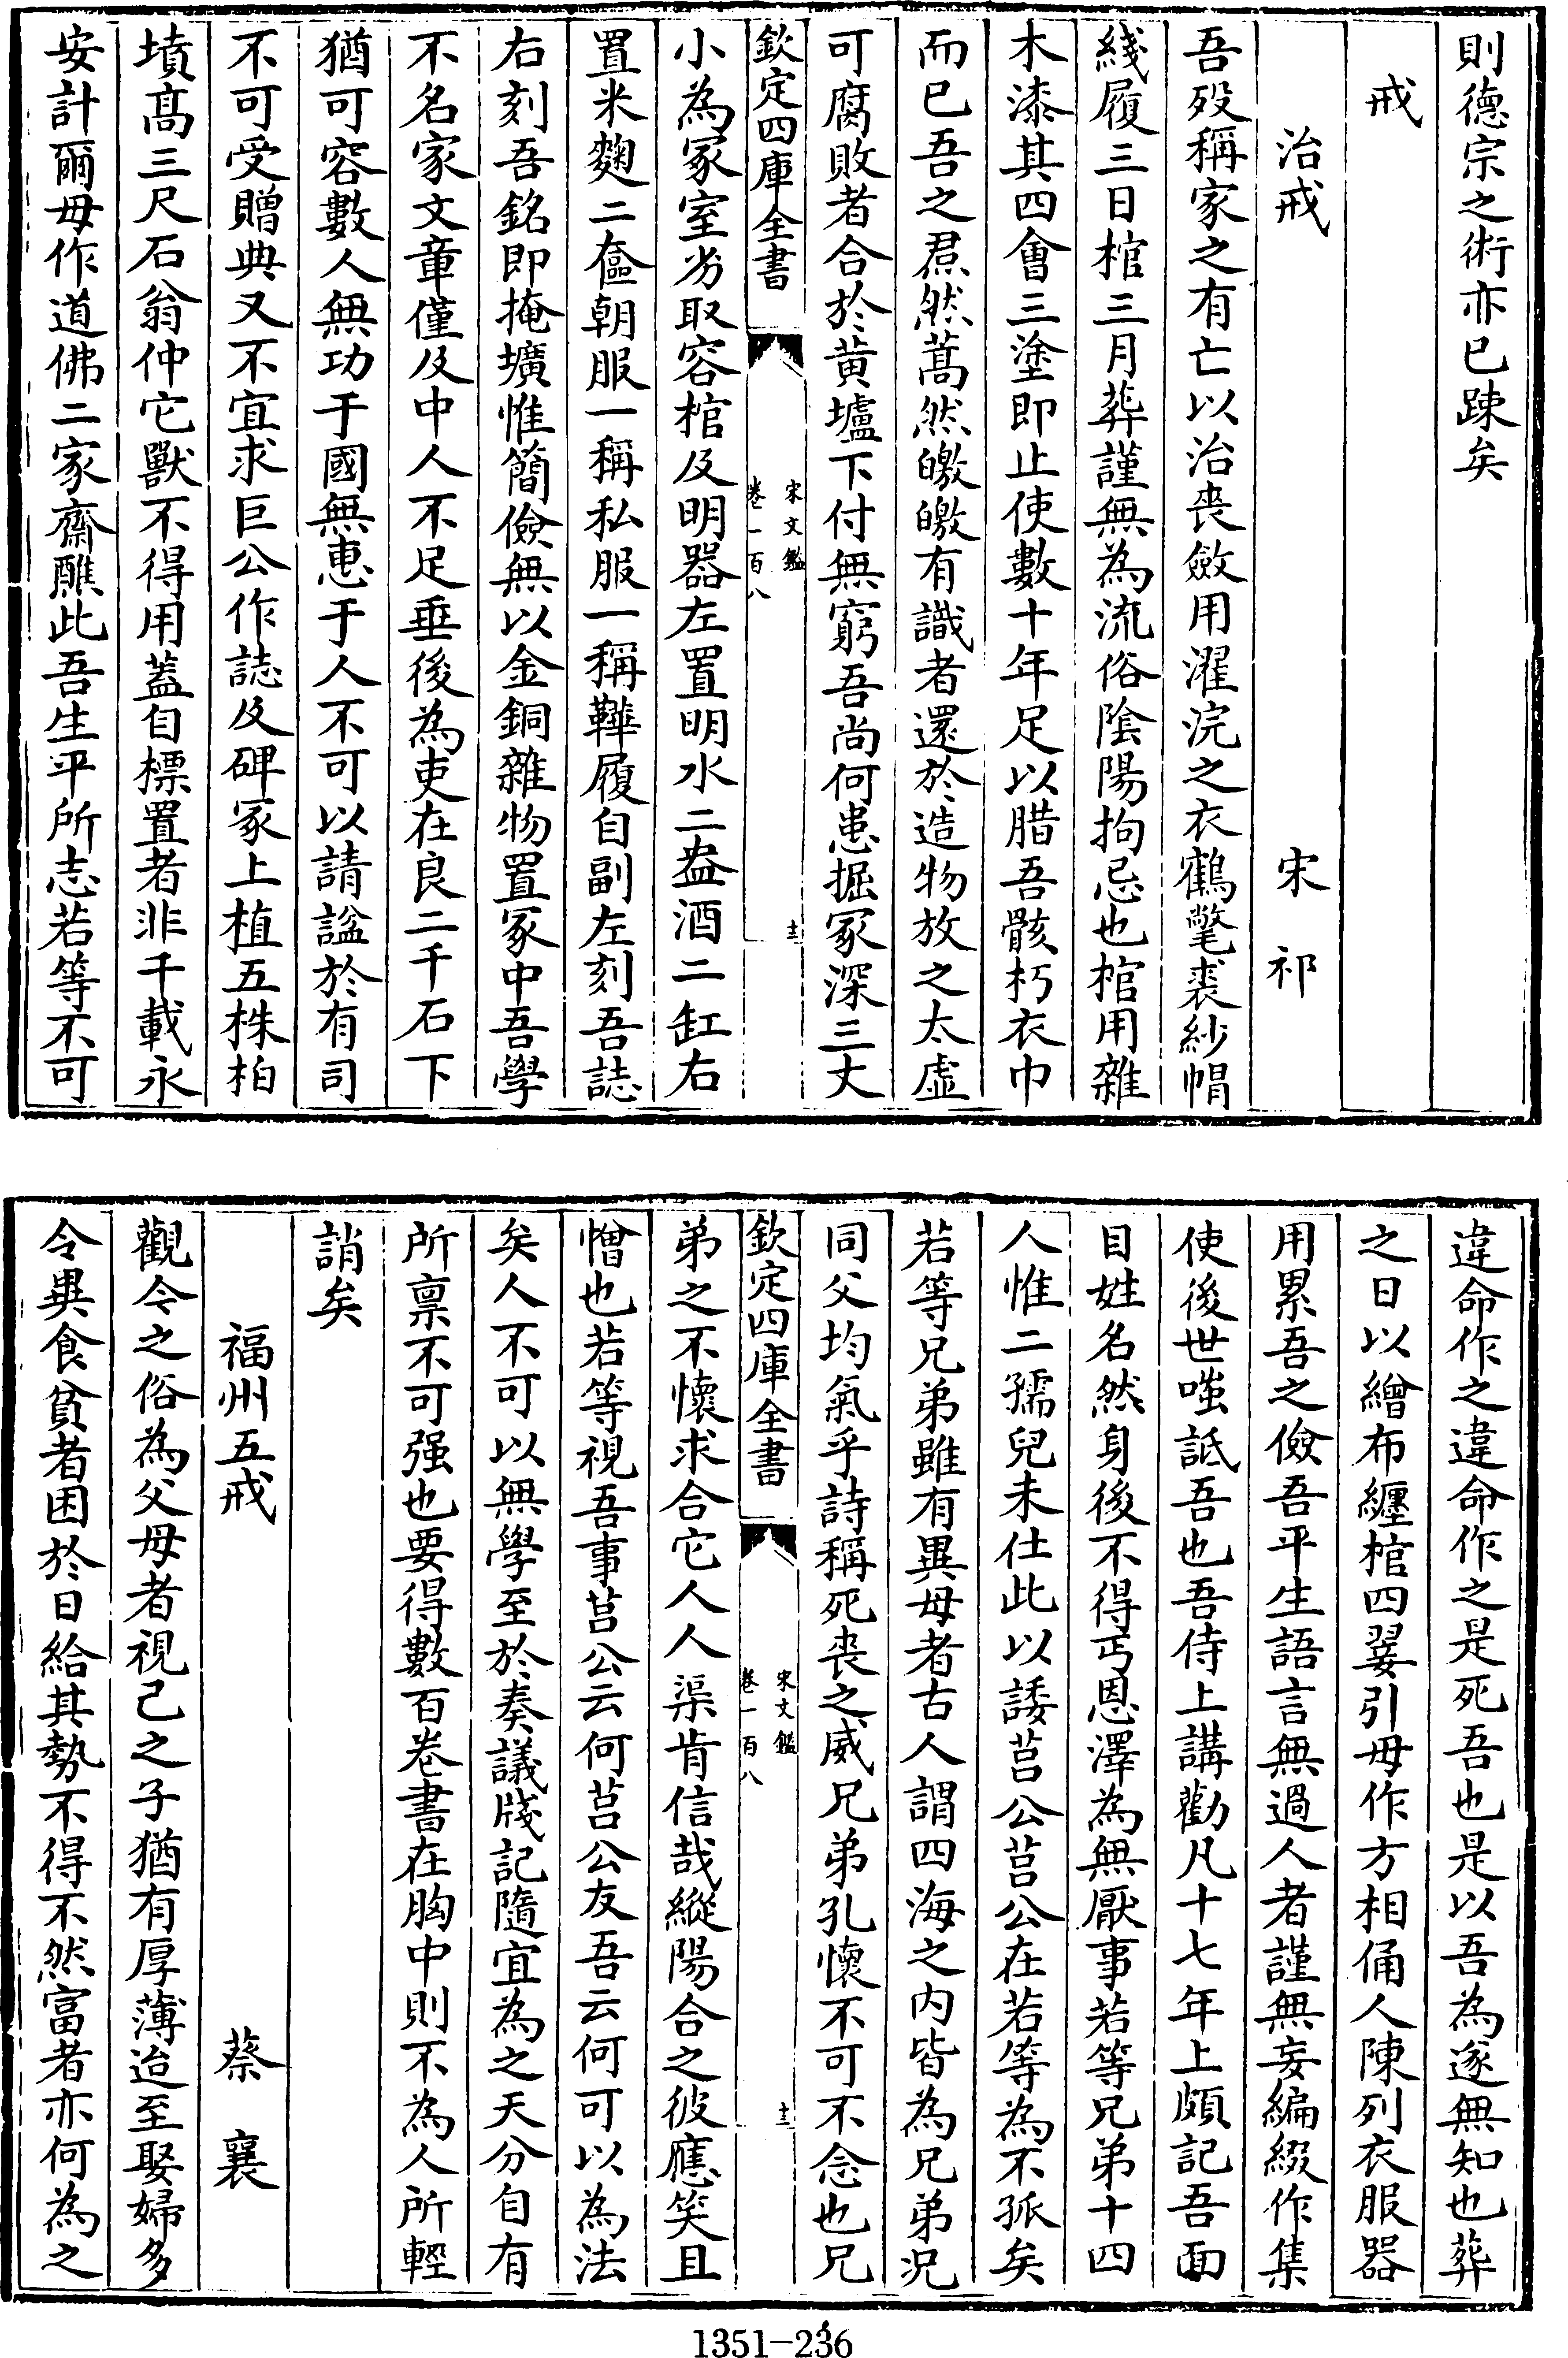 則德宗之術亦已踈矣
戒
治戒　宋　祁
吾歿稱家之有亡以治喪斂用濯浣之衣鶴氅裘紗帽
綫履三日棺三月葬謹無為流俗陰陽拘忌也棺用雜
木漆其四會三塗即止使數十年足以腊吾骸朽衣巾
而已吾之焄然蒿然皦皦有識者還於造物放之太虛
可腐敗者合於黃壚下付無窮吾尚何患掘冢深三丈
欽定四庫全書
宋文鑑
卷一百八
十二
小為冢室劣取容棺及明器左置明水二盎酒二缸右
置米麴二奩朝服一稱私服一稱鞾履自副左刻吾誌
右刻吾銘即掩壙惟簡儉無以金銅雜物置冢中吾學
不名家文章僅及中人不足垂後為吏在良二千石下
猶可容數人無功于國無惠于人不可以請謚於有司
不可受贈典又不宜求巨公作誌及碑冢上植五株柏
墳髙三尺石翁仲它獸不得用蓋自標置者非千載永
安計爾毋作道佛二家齋醮此吾生平所志若等不可
違命作之違命作之是死吾也是以吾為遂無知也葬
之日以繒布纏棺四翣引毋作方相俑人陳列衣服器
用累吾之儉吾平生語言無過人者謹無妄編綴作集
使後世嗤詆吾也吾侍上講勸凡十七年上頗記吾面
目姓名然身後不得丐恩澤為無厭事若等兄弟十四
人惟二孺兒未仕此以諉莒公莒公在若等為不孤矣
若等兄弟雖有異母者古人謂四海之內皆為兄弟況
同父均氣乎詩稱死喪之威兄弟孔懷不可不念也兄
欽定四庫全書
宋文鑑
卷一百八
十三
弟之不懷求合它人人渠肯信哉縱陽合之彼應笑且
憎也若等視吾事莒公云何莒公友吾云何可以為法
矣人不可以無學至於奏議牋記隨宜為之天分自有
所稟不可强也要得數百卷書在胸中則不為人所輕
誚矣
福州五戒　蔡　襄
觀今之俗為父母者視己之子猶有厚薄迨至娶婦多
令異食貧者困於日給其勢不得不然富者亦何為之
1351-236